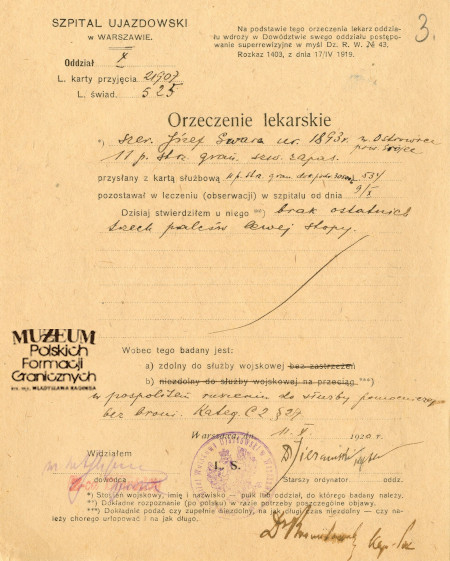 SZPITAL UJAZDOWSKI
w WARSZAWIE.
Oddział X
L. karty przyjęcia 21907
L. świad. 525
Na podstawie tego orzeczenia lekarz oddzia-
łu wdroży w Dowództwie swego oddziału postępo-
wanie superrewizyjne w myśl Dz. R. W. № 43,
Rozkaz 1403, z dnia 17/IV 1919.
3.
Orzeczenie lekarskie
*) szer. Józef Gwara ur. 1893 r.
11 p. str. gran. szw. zapas.
przysłany z kartą służbową 534
pozostawał w leczeniu (obserwacji) w szpitalu od dnia 9/X
Dzisiaj stwierdziłem u niego **) brak ostatnich
trzech palców lewej stopy.
MUZEUM
Polskich
Formacji
Granicznych
im. mjr. WŁADYSŁAWA RAGINISA
Wobec tego badany jest:
a) zdolny do służby wojskowej bez zastrzeżeń
b) niezdolny do służby wojskowej na przeciąg ***)
w pospolitem ruszeniu do służby pomocniczej
bez broni. Kateg. C2 § 27
Warszawa, dn. 11. X. 1920 r.
Widziałem
L. S.
dowódca
Starszy ordynator oddz.
*) Stopień wojskowy, imię i nazwisko — pułk lub oddział, do którego badany należy.
**) Dokładne rozpoznanie (po polsku) w razie potrzeby poszczególne objawy.
***) Dokładnie podać czy zupełnie niezdolny, na jak długi czas niezdolny — czy na-
leży chorego urlopować / na jak długo.